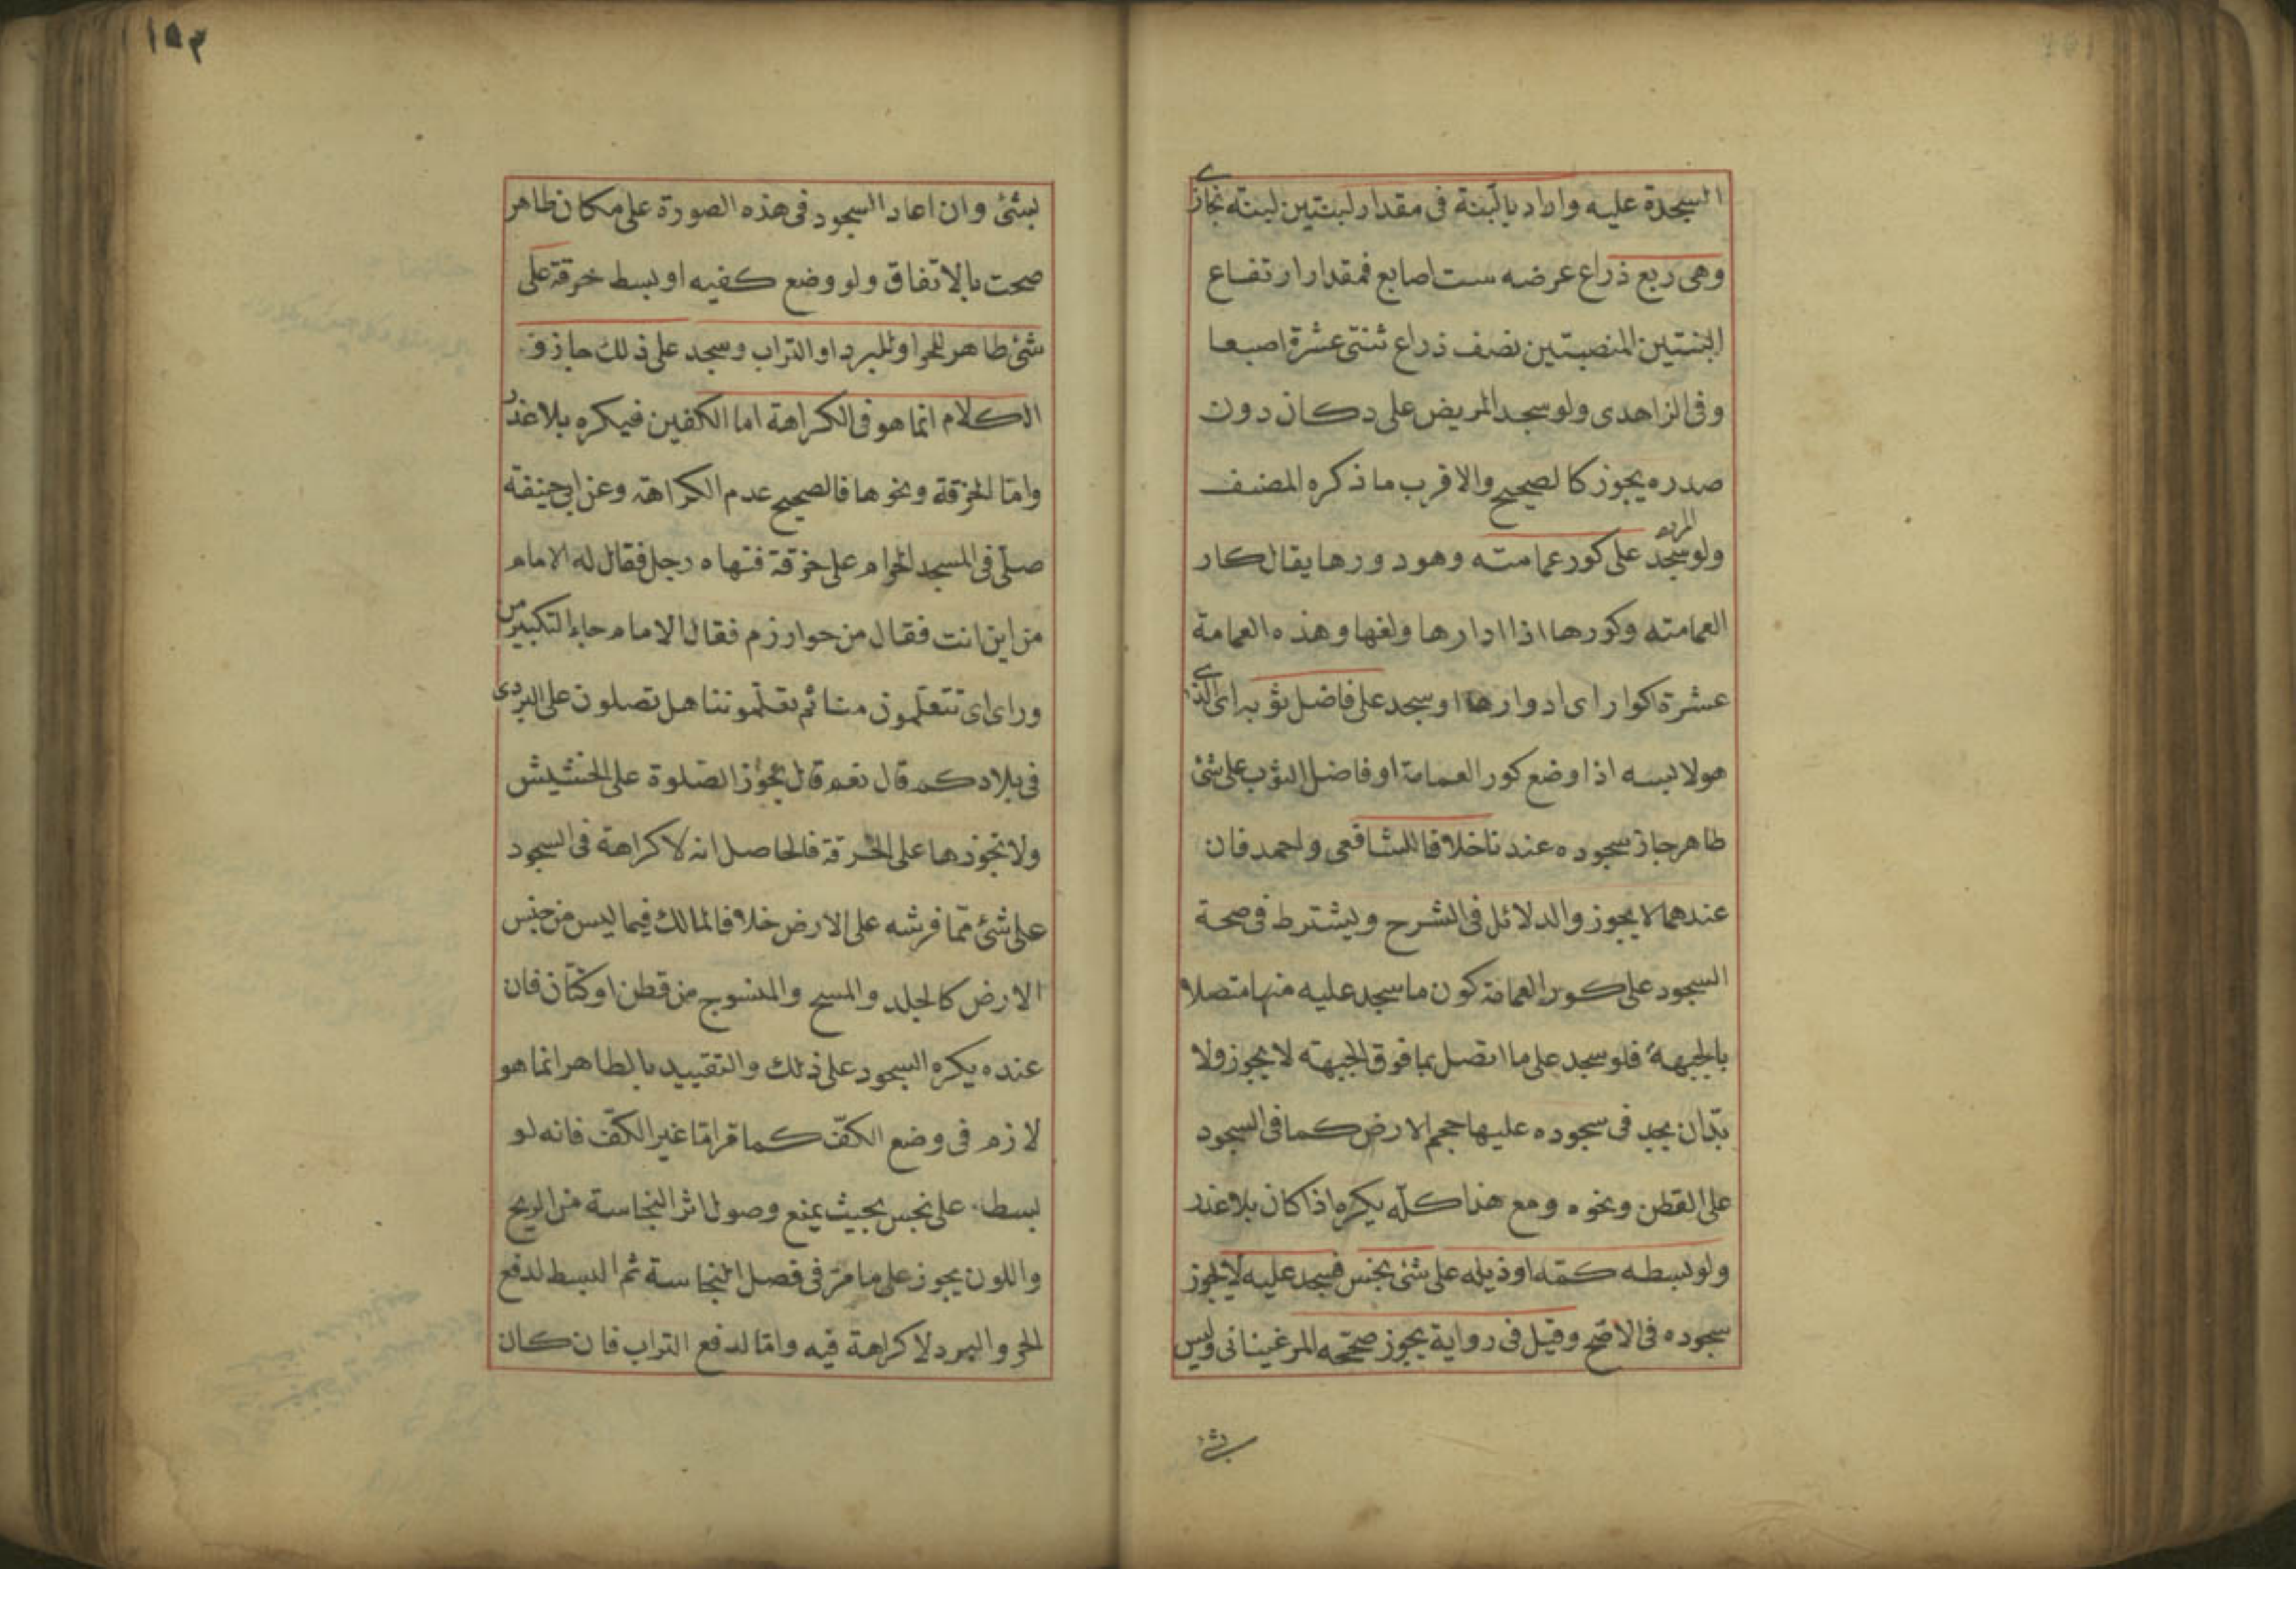 السجدة عليه واراد بالبنة فى مقدار لبنتين لبنة بخارى
وهى ربع ذراع عرضه ست اصابع فمقدار ارتفاع
البنتين المنصبتين نصف ذراع ثنتى عشرة اصبعا
وفى الزاهدى ولو سجد المريض على دكان دون
صدره يجوز كالصحيح والاقرب ما ذكره المصنف
ولو سجد على كور عمامته وهو دورها يقال كار
العمامته وكورها اذا ادارها ولفها وهذه العمامة
عشرة اكوار اى ادوارها او سجد على فاضل ثوبه اى الذى
هو لابسه اذا وضع كور العمامة او فاضل الثوب على شئ
طاهر جاز سجوده عندنا خلافا للشافعى واحمد فان
عندهما لا يجوز والدلائل فى الشرح ويشترط فى صحة
السجود على كور العمامة كون ما سجد عليه منها متصلا
بالجبهة فلو سجد على ما اتصل بما فوق الجبهته لا يجوز ولا
بدّ ان يجد فى سجوده عليها حجم الارض كما فى السجود
على القطن ونحوه ومع هذا كلّه يكره اذا كان بلا عذر
ولو بسطه كمّه او ذيله على شئ نجس فسجد عليه لا يجوز
سجوده فى الاصّح وقيل فى رواية يجوز صحّحه المرغينانى وليس
بشئ
١٥٣
بشئ وان اعاد السجود فى هذه الصورة على مكان طاهر
صحت بالاتفاق ولو وضع كفيه او بسط خرقة على
شئ طاهر للحر او للبرد او التراب وسجد على ذلك جاز و
الكلام انما هو فى الكراهة اما الكفين فيكره بلا عذر
وامّا الخرقة ونحوها فالصحيح عدم الكراهة وعن ابى حنيفة
صلّى فى المسجد الحرام على خرقة فنهاه رجل فقال له الامام
من اين انت فقال من خوارزم فقال الامام جاء التكبير من
وراى اى تتعلّمون منا ثم تعلّموننا هل تصلون على البردى
فى بلادكم قال نعم قال تجوّز الصّلوة على الحشيش
ولا تجوزها على الخرقة فالحاصل انه لا كراهة فى السجود
على شئ ممّا فرشه على الارض خلافا لمالك فيما ليس من جنس
الارض كالجلد والمسح والمنسوج من قطن او كتّان فان
عنده يكره السجود على ذلك والتقييد بالطاهر انما هو
لازم فى وضع الكفّ كما مّر امّا غير الكفّ فانه لو
بسط على نجس بحيث يمنع وصول اثر النجاسة من الريح
واللون يجوز على ما مرّ فى فصل النجاسة ثم البسط لدفع
الحر والبرد لا كراهة فيه وامّا لدفع التراب فان كان